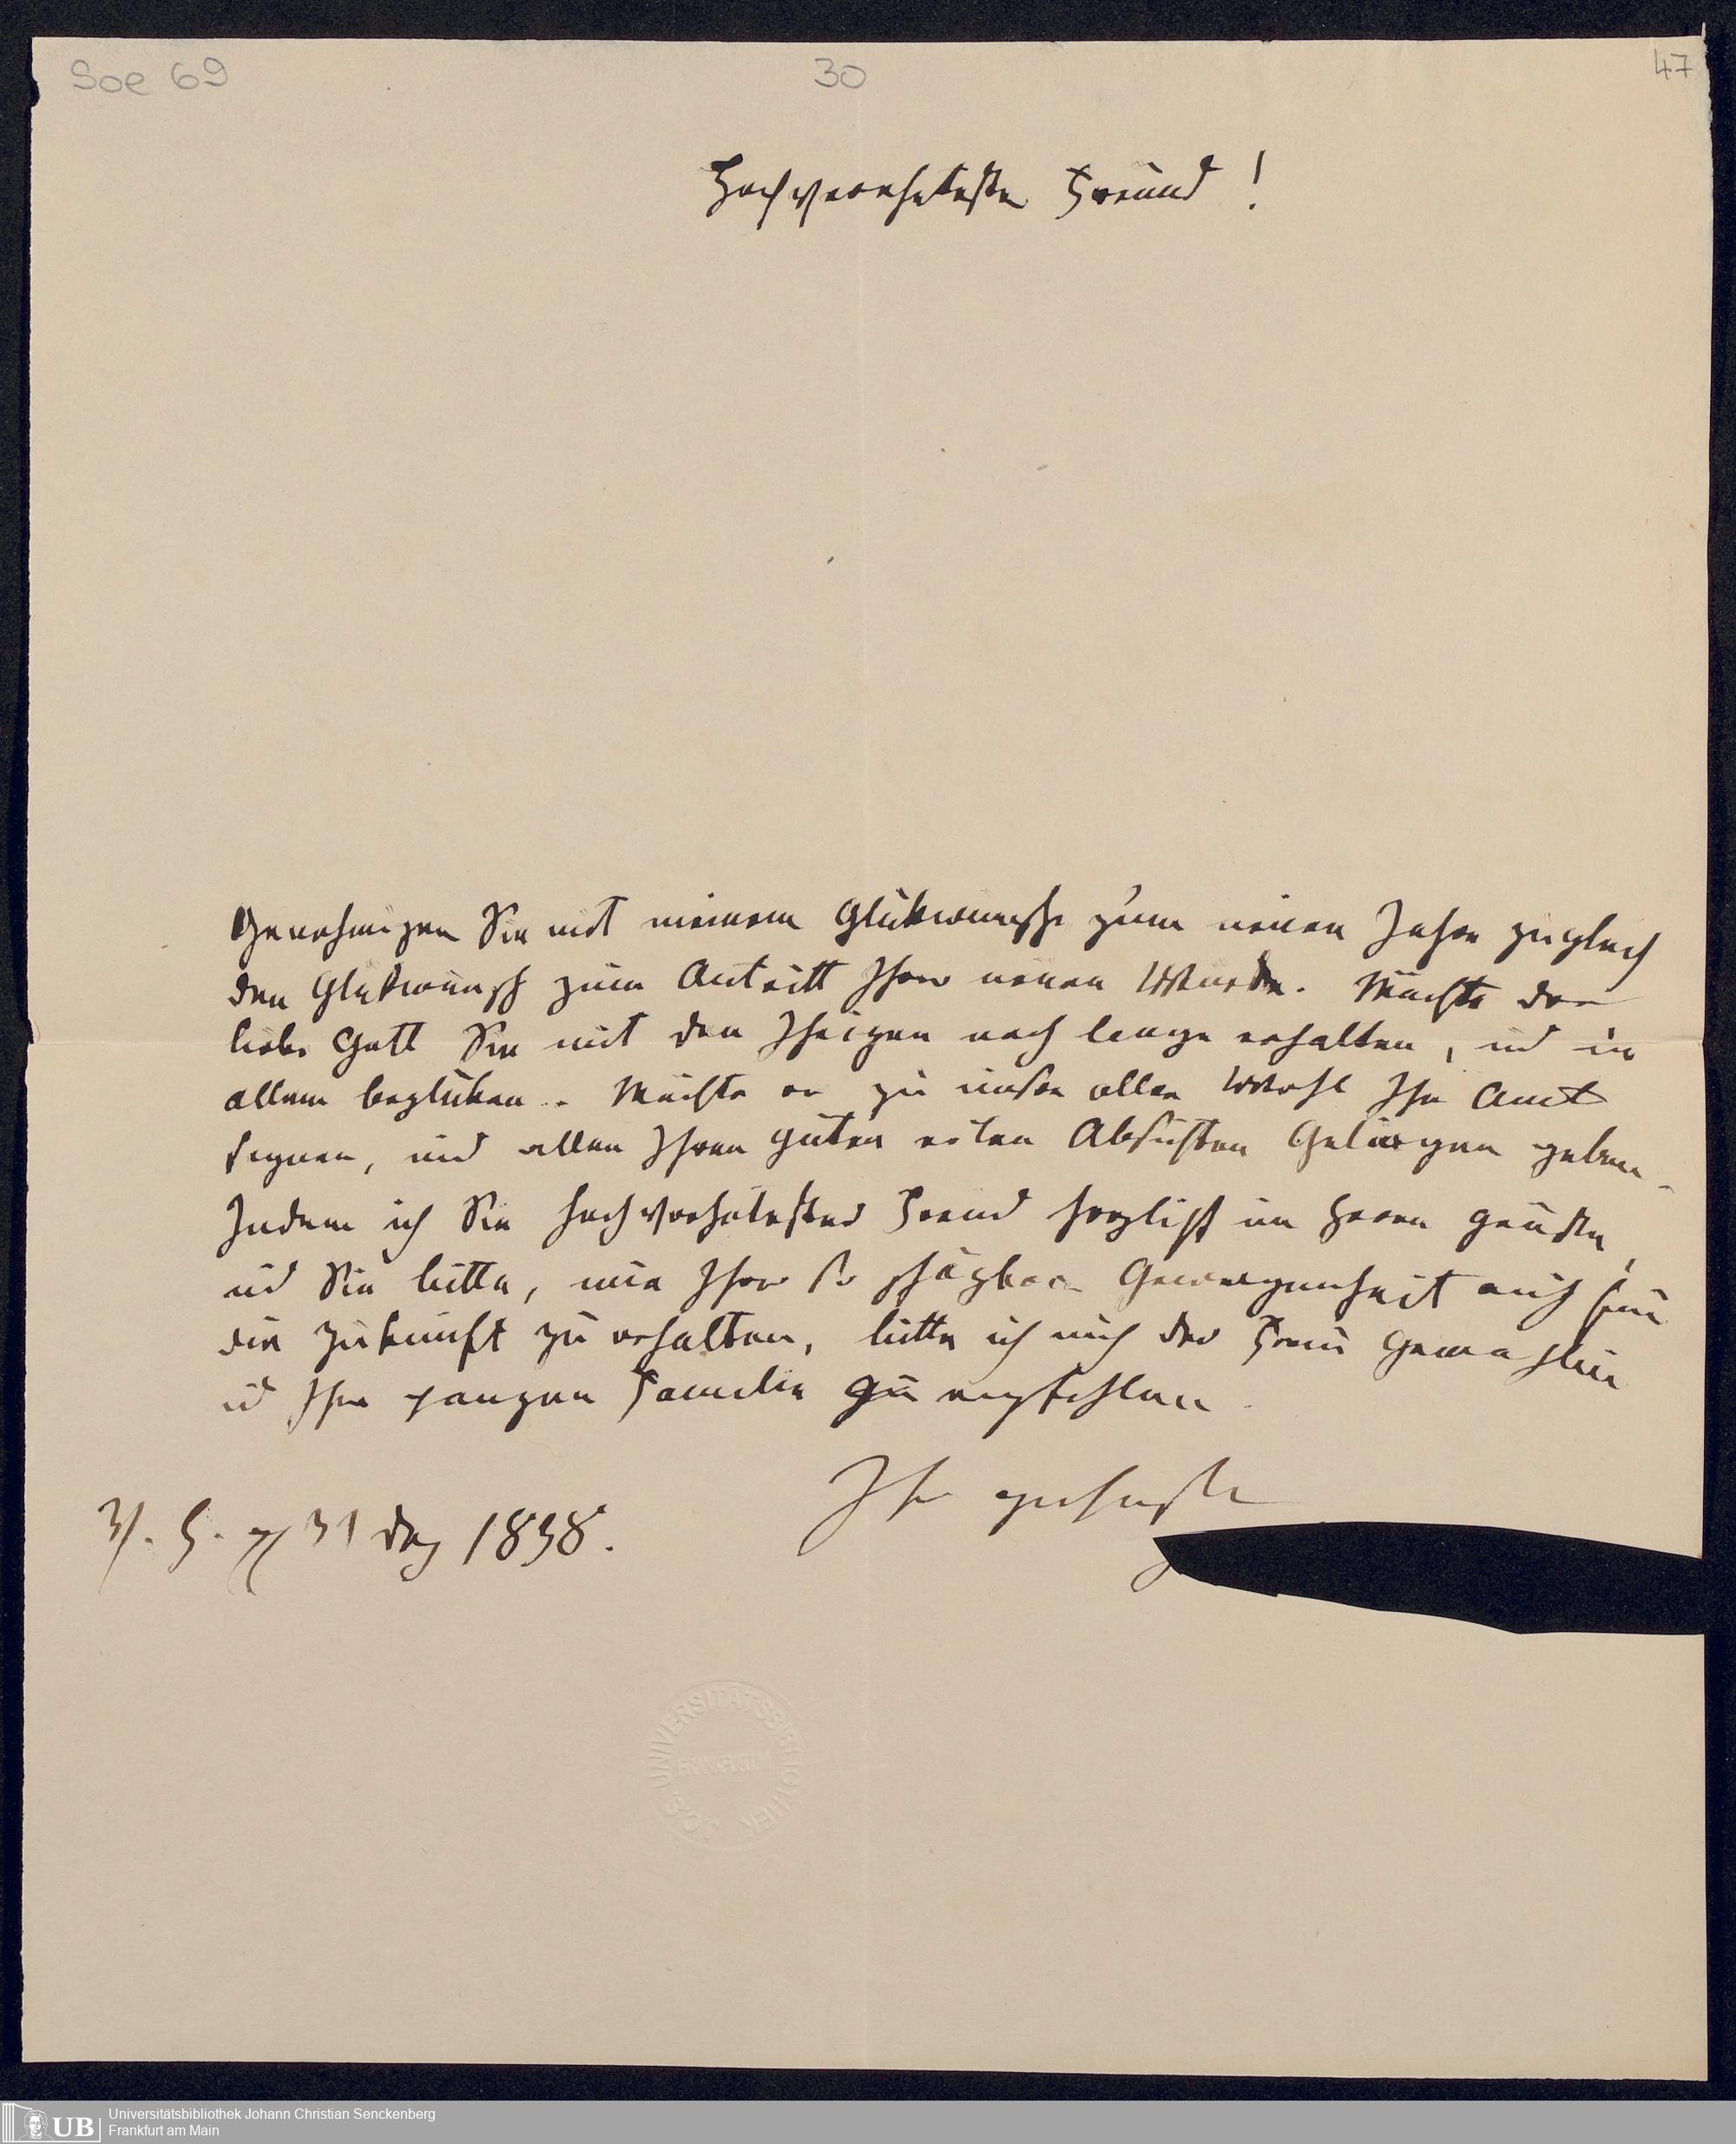 Soe 69 30 47
Hochverehrtester Freund!
Genehmigen Sie mit meinem Glükwunsche zum neuen Jahre zugleich
den Glükwunsch zum Antritt Ihrer neuen Würde. Möchte der
liebe Gott Sie mit den Ihrigen noch lange erhalten, und in
allem beglüken. Möchte er zu unser aller Wohl Ihr Amt
segnen, und allen Ihren guten edlen Absichten Gelingen geben.
Indem ich Sie hochverehrtester Freund herzlichst im Herrn grüße,
und Sie bitte, mir Ihre so schäzbare Gewogenheit auch für
die Zukunft zu erhalten, bitte ich mich der Frau Gemahlin
und Ihrer ganzen Familie zu empfehlen.
Ihr gehorsamster
31 Dez 1838.
UNIVERSITÄTSBIBLIOTHEK
UB
Universitätsbibliothek Johann Christian Senckenberg
Frankfurt am Main